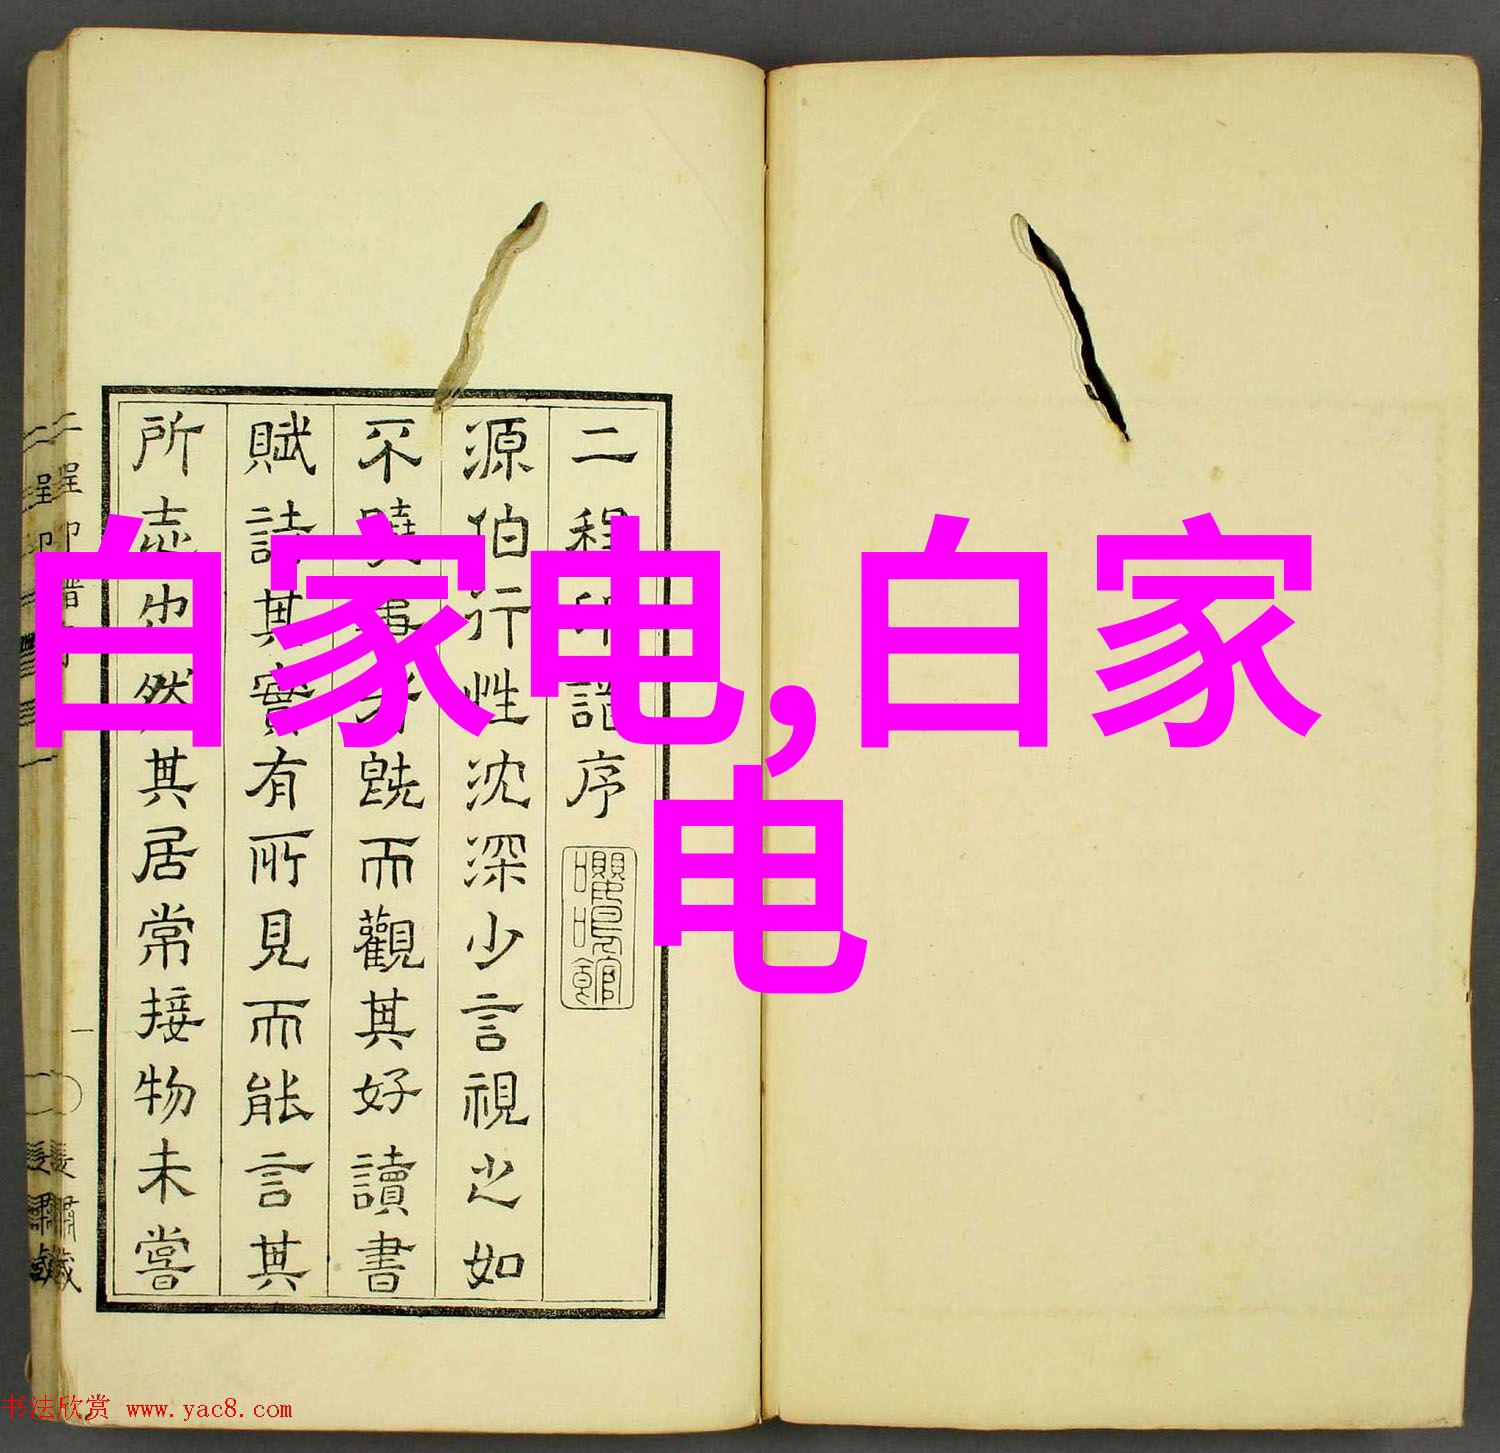 白家电,白家
电
二程印譜序
源伯行性沈深少言視之如
不曉事者既而觀其好讀書
賦詩其實有所見而能言其
所志也然其居常接物未嘗
书法欣赏 www.yac8.com